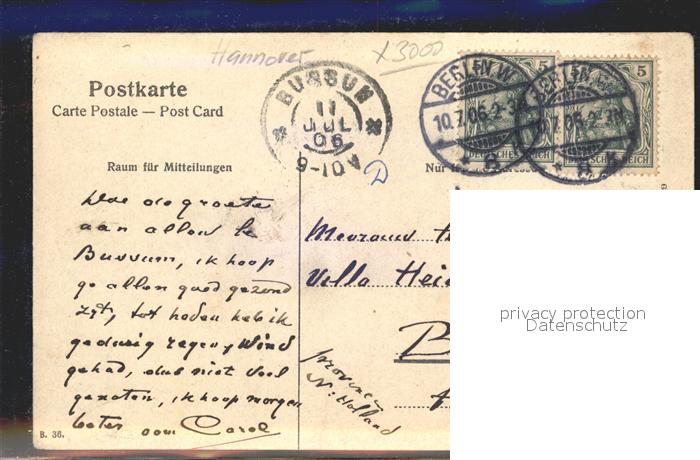 Hannover x3000
Postkarte
Carte Postale — Post Card
BUSSUM
11
JUL
06
9-10V
BERLIN W
10.7.06.2-3N
5
DEUTSCHES REICH
5
DEUTSCHES REICH
D
Raum für Mitteilungen
Nur
Doe de groete
aan allen te
Bussum, ik hoop
ge allen goed gezond
zijt, tot heden heb ik
gedurig regen, wind
gehad, dus niet veel
genoten, ik hoop morgen
beter oom Carel
Mevrouw
Villa Hei
B
provincie
N: Holland
B. 36.
privacy protection
Datenschutz